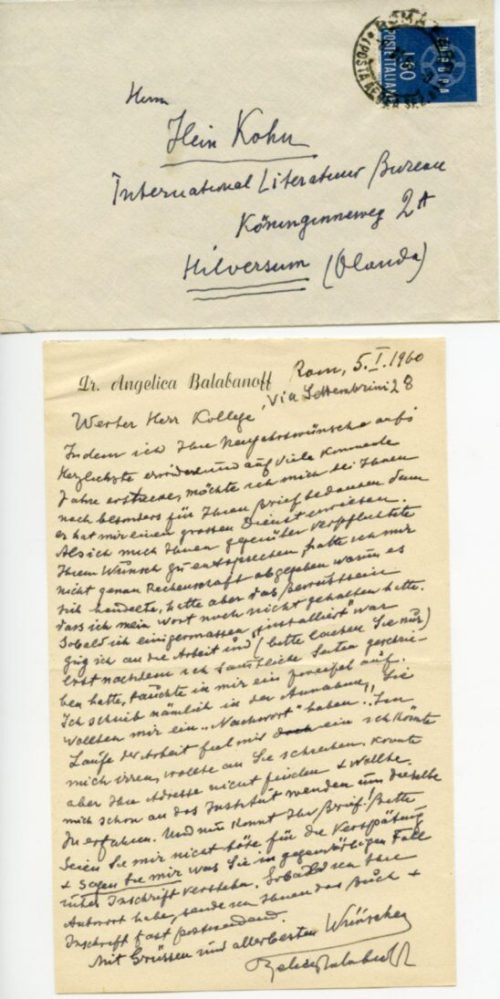 Herrn
Hein Kohn
International Literatuur Bureau
Köninginneweg 2A
Hilversum (Olanda)
ROMA
POSTE ITALIANE
L.60
Dr. Angelica Balabanoff
Rom, 5.I.1960
Via Settembrini 28
Werter Herr Kollege,
Indem ich Ihre Neujahrswünsche aufs
Herzlichste erwidere und auf viele kommende
Jahre erstrecke, möchte ich mich bei Ihnen
noch besonders für Ihren Brief bedanken denn
er hat mir einen grossen Dienst erwiesen.
Als ich mich Ihnen gegenüber verpflichtete
Ihrem Wunsch zu entsprechen hatte ich mir
nicht genau Rechenschaft abgegeben warum es
sich handelte, hatte aber das Bewusstsein
dass ich mein Wort noch nicht gehalten hatte.
Sobald ich einigermassen "installiert" war
ging ich an die Arbeit und (bitte lachen Sie nur)
erst nachdem ich sämtliche Seiten geschrie-
ben hatte, tauchte in mir ein Zweifel auf.
Ich schrieb nämlich in der Annahme, Sie
wollten ein "Nachwort" haben. Im
Laufe der Arbeit fiel mir ein ich könnte
mich irren, wollte an Sie schreiben, konnte
aber Ihre Adresse nicht finden & wollte
mich schon an das Institut wenden um dieselbe
zu erfahren. Und nun kommt Ihr Brief! Bitte
seien Sie mir nicht böse für die Verspätung
& sagen Sie mir was Sie in gegenwärtigen Fall
unter Inschrift verstehen. Sobald ich Ihre
Antwort habe, sende ich Ihnen das Buch &
Inschrift fast postwendend.
Mit Grüssen und allerbesten Wünschen
Balabanoff